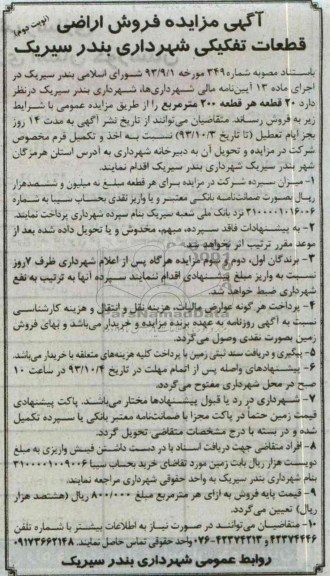 آگهی مزایده فروش اراضی
(نوبت دوم)
قطعات تفکیکی شهرداری بندر سیریک
باستناد مصوبه شماره ۳۴۹ مورخه ۹۳/۹/۱ شورای اسلامی بندر سیریک در
اجرای ماده ۱۳ آیین‌نامه مالی شهرداری‌ها، شهرداری بندر سیریک درنظر
دارد ۲۰ قطعه هر قطعه ۲۰۰ مترمربع را از طریق مزایده عمومی با شرایط
زیر به فروش رساند. متقاضیان می‌توانند از تاریخ نشر آگهی به مدت ۱۴ روز
بجز ایام تعطیل (تا تاریخ ۹۳/۱۰/۳) نسبت به اخذ و تکمیل فرم مخصوص
شرکت در مزایده و تحویل آن به دبیرخانه شهرداری به آدرس استان هرمزگان
شهر بندر سیریک شهرداری بندر سیریک اقدام نمایند.
۱- میزان سپرده شرکت در مزایده برای هر قطعه مبلغ نه میلیون و ششصدهزار
ریال بصورت ضمانت‌نامه بانکی معتبر و یا واریز نقدی بحساب سیبا به شماره
۳۱۰۰۰۰۱۰۱۶۰۰۶ نزد بانک ملی شعبه سیریک بنام سپرده شهرداری پرداخت نمایند.
۲- به پیشنهادات فاقد سپرده، مبهم، مخدوش و یا تحویل داده شده بعد از
موعد مقرر ترتیب اثر نخواهد شد.
۳- برندگان اول، دوم و سوم مزایده هرگاه پس از اعلام شهرداری ظرف ۷روز
نسبت به واریز مبلغ پیشنهادی اقدام ننمایند سپرده آنها به ترتیب به نفع
شهرداری ضبط خواهد شد.
۴- پرداخت هر گونه عوارض مالیات، هزینه نقل و انتقال و هزینه کارشناسی
نسبت به آگهی روزنامه به عهده برنده مزایده و خریدار می‌باشد و بهای فروش
زمین بصورت نقدی وصول می‌گردد.
۵- پیگیری و دریافت سند ثبتی زمین با پرداخت کلیه هزینه‌های متعلقه با خریدار می‌باشد.
۶- پیشنهادهای واصله پس از اتمام مهلت در تاریخ ۹۳/۱۰/۴ در ساعت ۱۰
صبح در محل شهرداری مفتوح می‌گردد.
۷- شهرداری در رد یا قبول پیشنهادها مختار می‌باشند. پاکت پیشنهادی
قیمت زمین حتماً در پاکت مجزا با ضمانت‌نامه معتبر بانکی یا سپرده تکمیل
شده و در بسته با درج مشخصات متقاضی تحویل گردد.
۸- افراد متقاضی جهت دریافت اسناد با در دست داشتن فیش واریزی به مبلغ
دویست هزار ریال بابت زمین مورد تقاضای خرید بحساب سیبا ۳۱۰۰۰۰۱۰۰۹۰۰۶
بنام شهرداری بندر سیریک به واحد حقوقی شهرداری مراجعه نمایند.
۹- قیمت پایه فروش به ازای هر مترمربع مبلغ ۸۰۰/۰۰۰ ریال (هشتصد هزار
ریال) تعیین می‌گردد.
۱۰- متقاضیان می‌توانند در صورت نیاز به اطلاعات بیشتر با شماره تلفن
۴۲۳۷۴۴۴۶ و ۴۲۳۷۴۲۱۳-۰۷۶ واحد حقوقی تماس حاصل نمایند. ۰۹۱۷۳۶۶۲۱۴۸
روابط عمومی شهرداری بندر سیریک